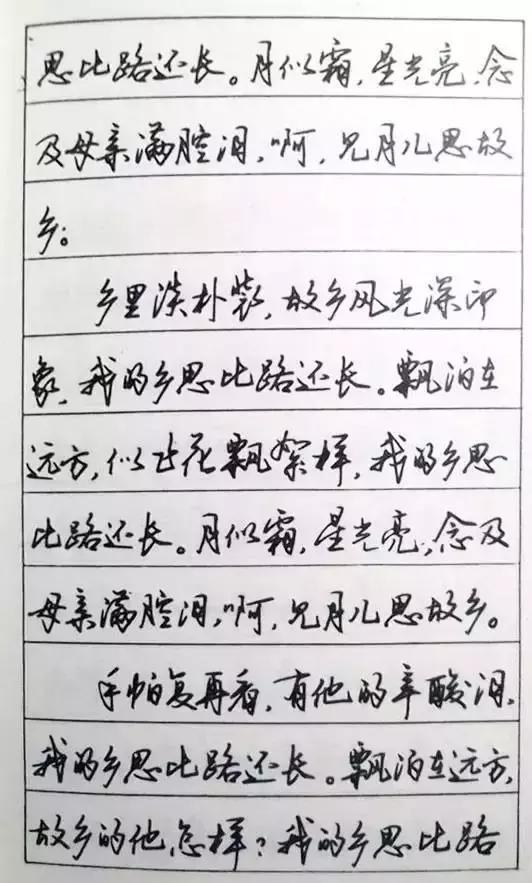 思比路还长。月似霜,星光亮,念
及母亲满腔泪,啊,见月儿思故
乡。
乡里淡朴装,故乡风光深印
象,我的乡思比路还长。飘泊在
远方,似飞花飘絮样,我的乡思
比路还长。月似霜,星光亮,念及
母亲满腔泪,啊,见月儿思故乡。
手帕复再看,有他的辛酸泪,
我的乡思比路还长。飘泊在远方,
故乡的他,怎样?我的乡思比路